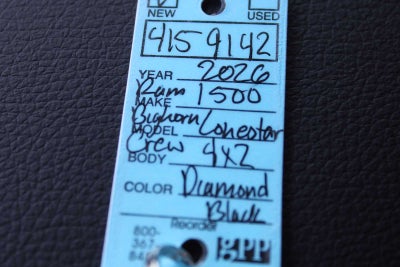 NEW USED
415 9142
YEAR 2026
Ram 1500
MAKE
Bighorn Lonestar
MODEL
Crew 4x2
BODY
COLOR Diamond
Black
Reorder
800-
367-
gpp